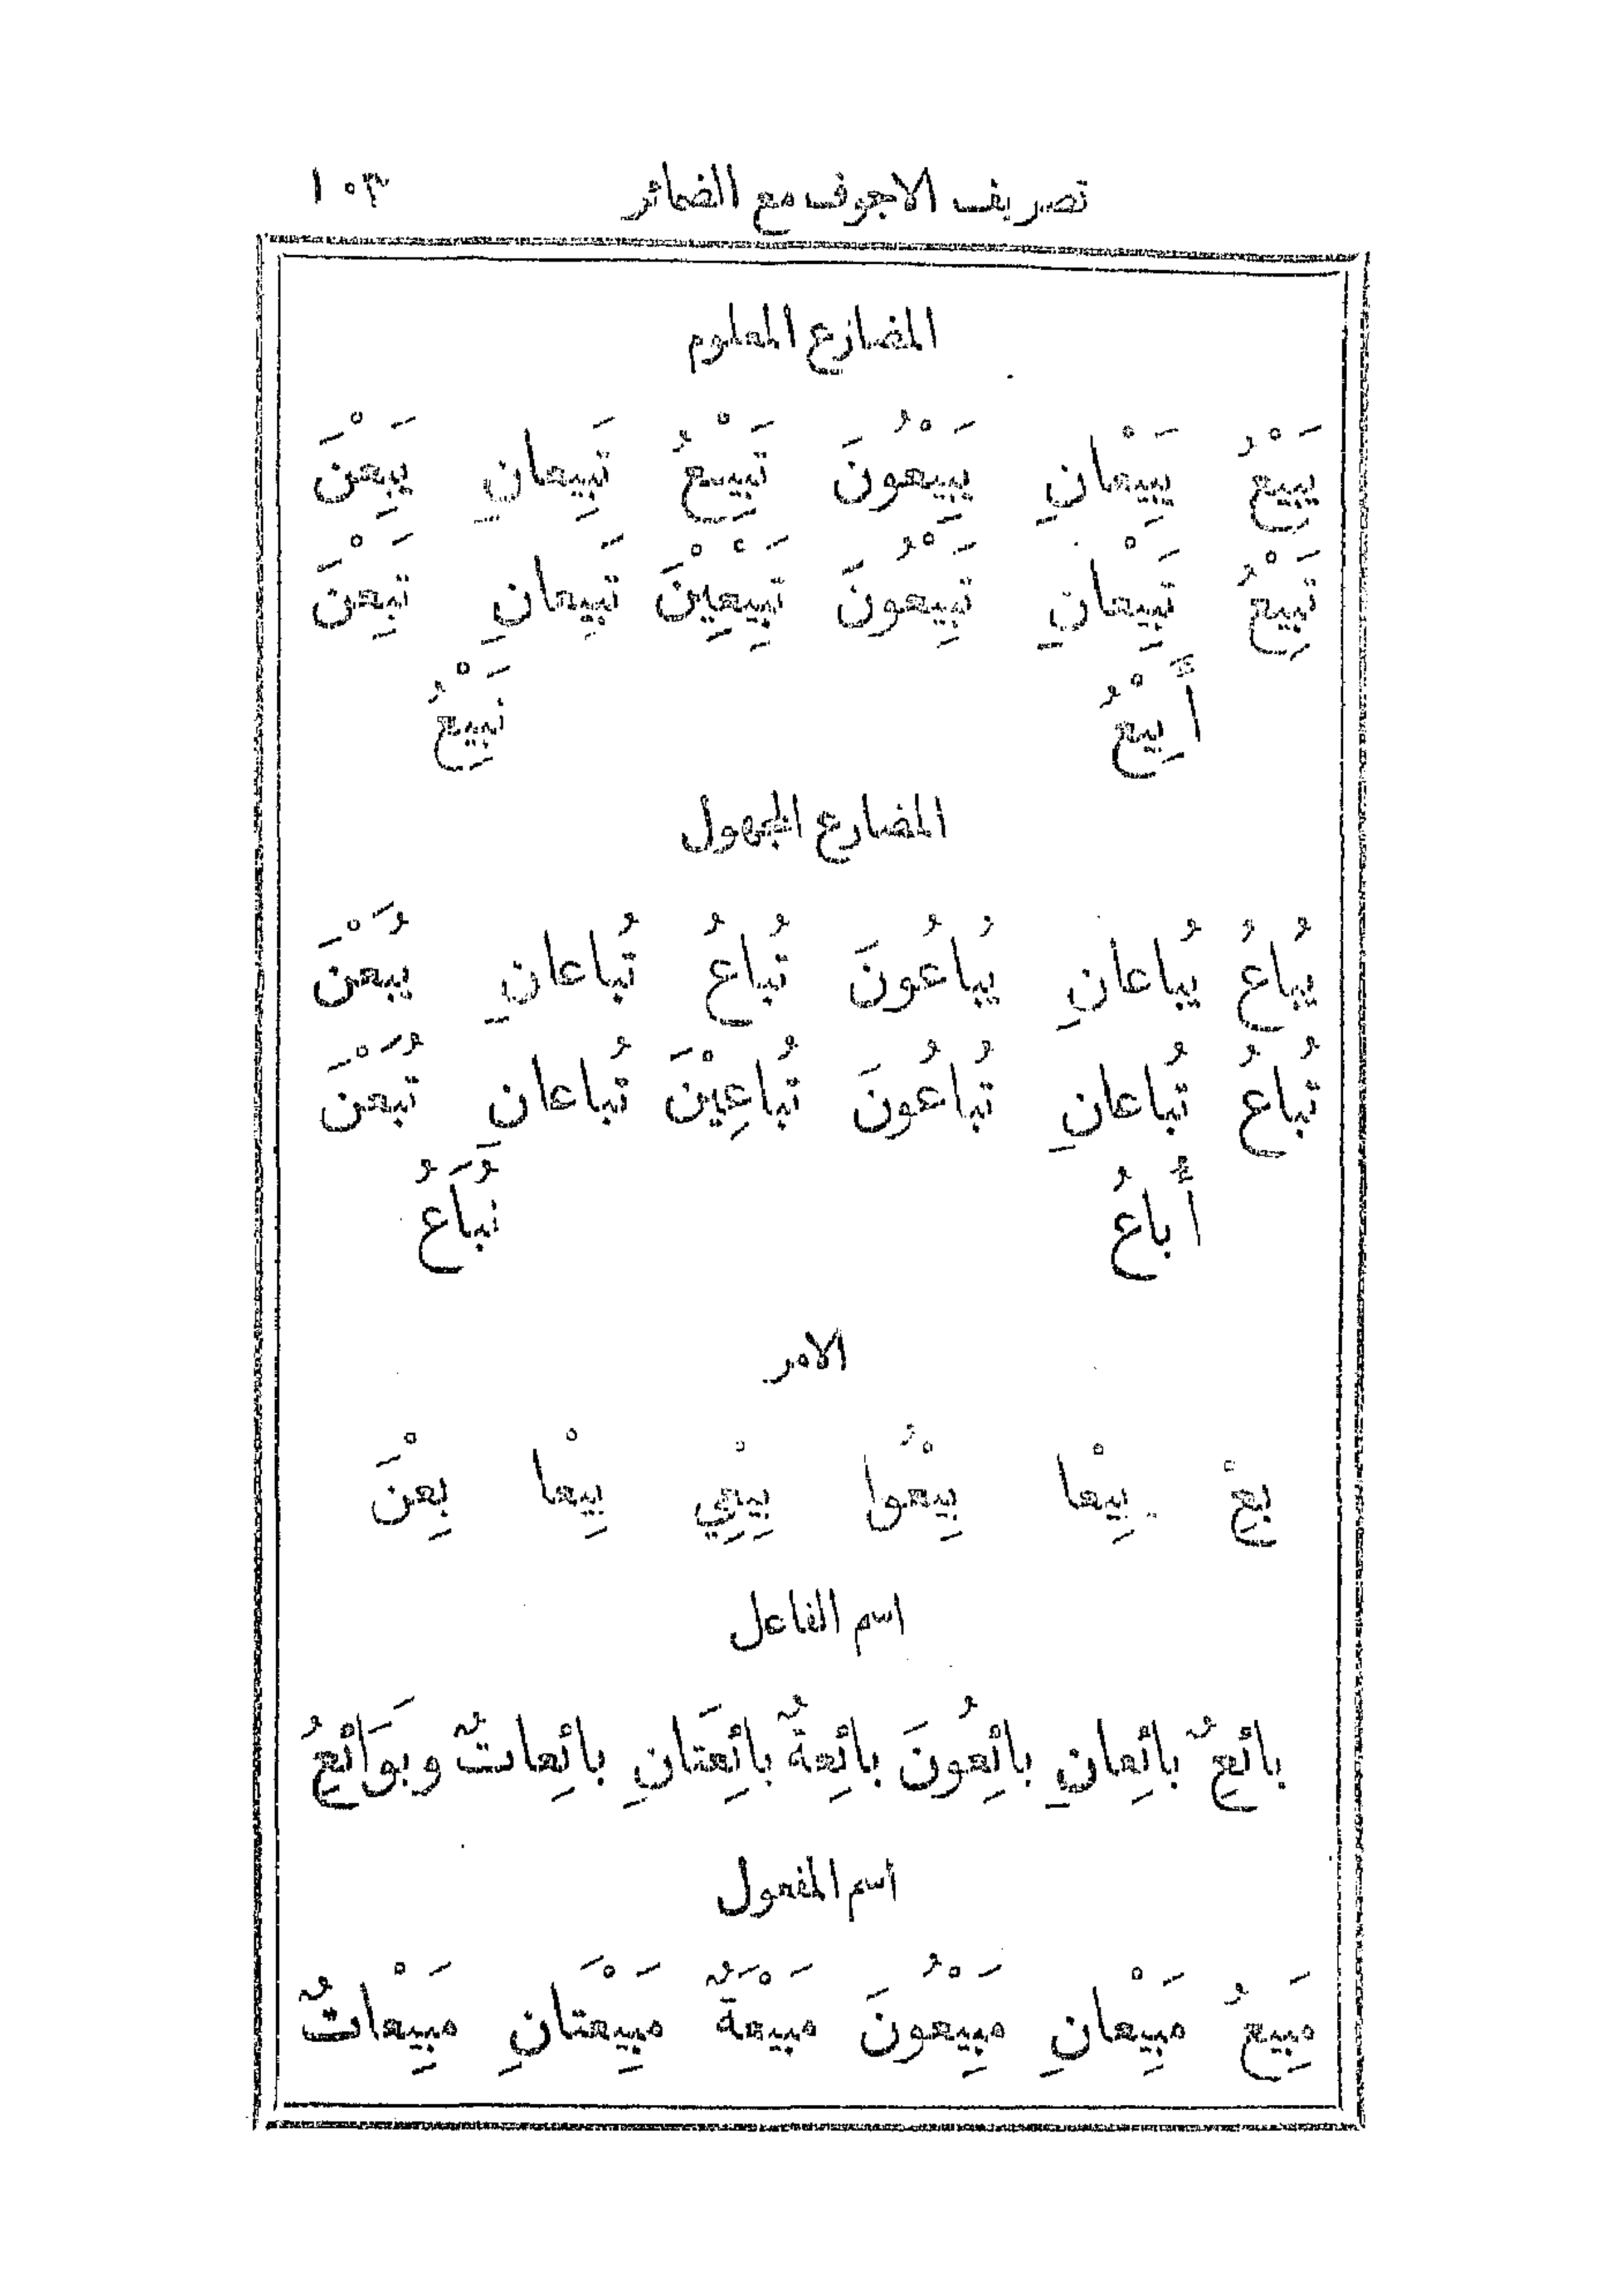 تصريف الاجوف مع الضمائر ١٠٣
المضارع المعلوم
يَبِيْعُ يَبِيْعانِ يَبِيْعُونَ تَبِيْعُ تَبِيعانِ يَبِعْنَ
تَبِيْعُ تَبِيْعانِ تَبِيْعُونَ تَبِيْعِيْنَ تَبِيعانِ تَبِعْنَ
أَبِيْعُ نَبِيْعُ
المضارع المجهول
يُباعُ يُباعانِ يُباعُونَ تُباعُ تُباعانِ يُبَعْنَ
تُباعُ تُباعانِ تُباعُونَ تُباعِيْنَ تُباعانِ تُبَعْنَ
أُباعُ نُبَاعُ
الامر
بِعْ بِيْعا بِيْعُوا بِيْعِي بِيْعا بِعْنَ
اسم الفاعل
بائعٌ بائِعانِ بائِعُونَ بائِعةٌ بائِعَتَانِ بائِعاتٌ وبَوَائعُ
اسم المفعول
مَبِيعُ مَبِيْعانِ مَبِيْعُونَ مَبْيَعَةٌ مَبِيْعَتانِ مَبِيْعاتٌ